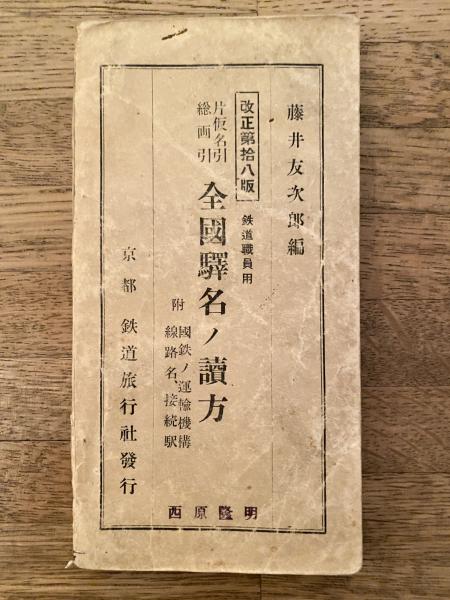 藤井友次郎編
改正第拾八版
鉄道職員用
片仮名引
総画引
全國驛名ノ讀方
附
國鉄ノ運輸機構
線路名、接続駅
京都 鉄道旅行社發行
西原隆明